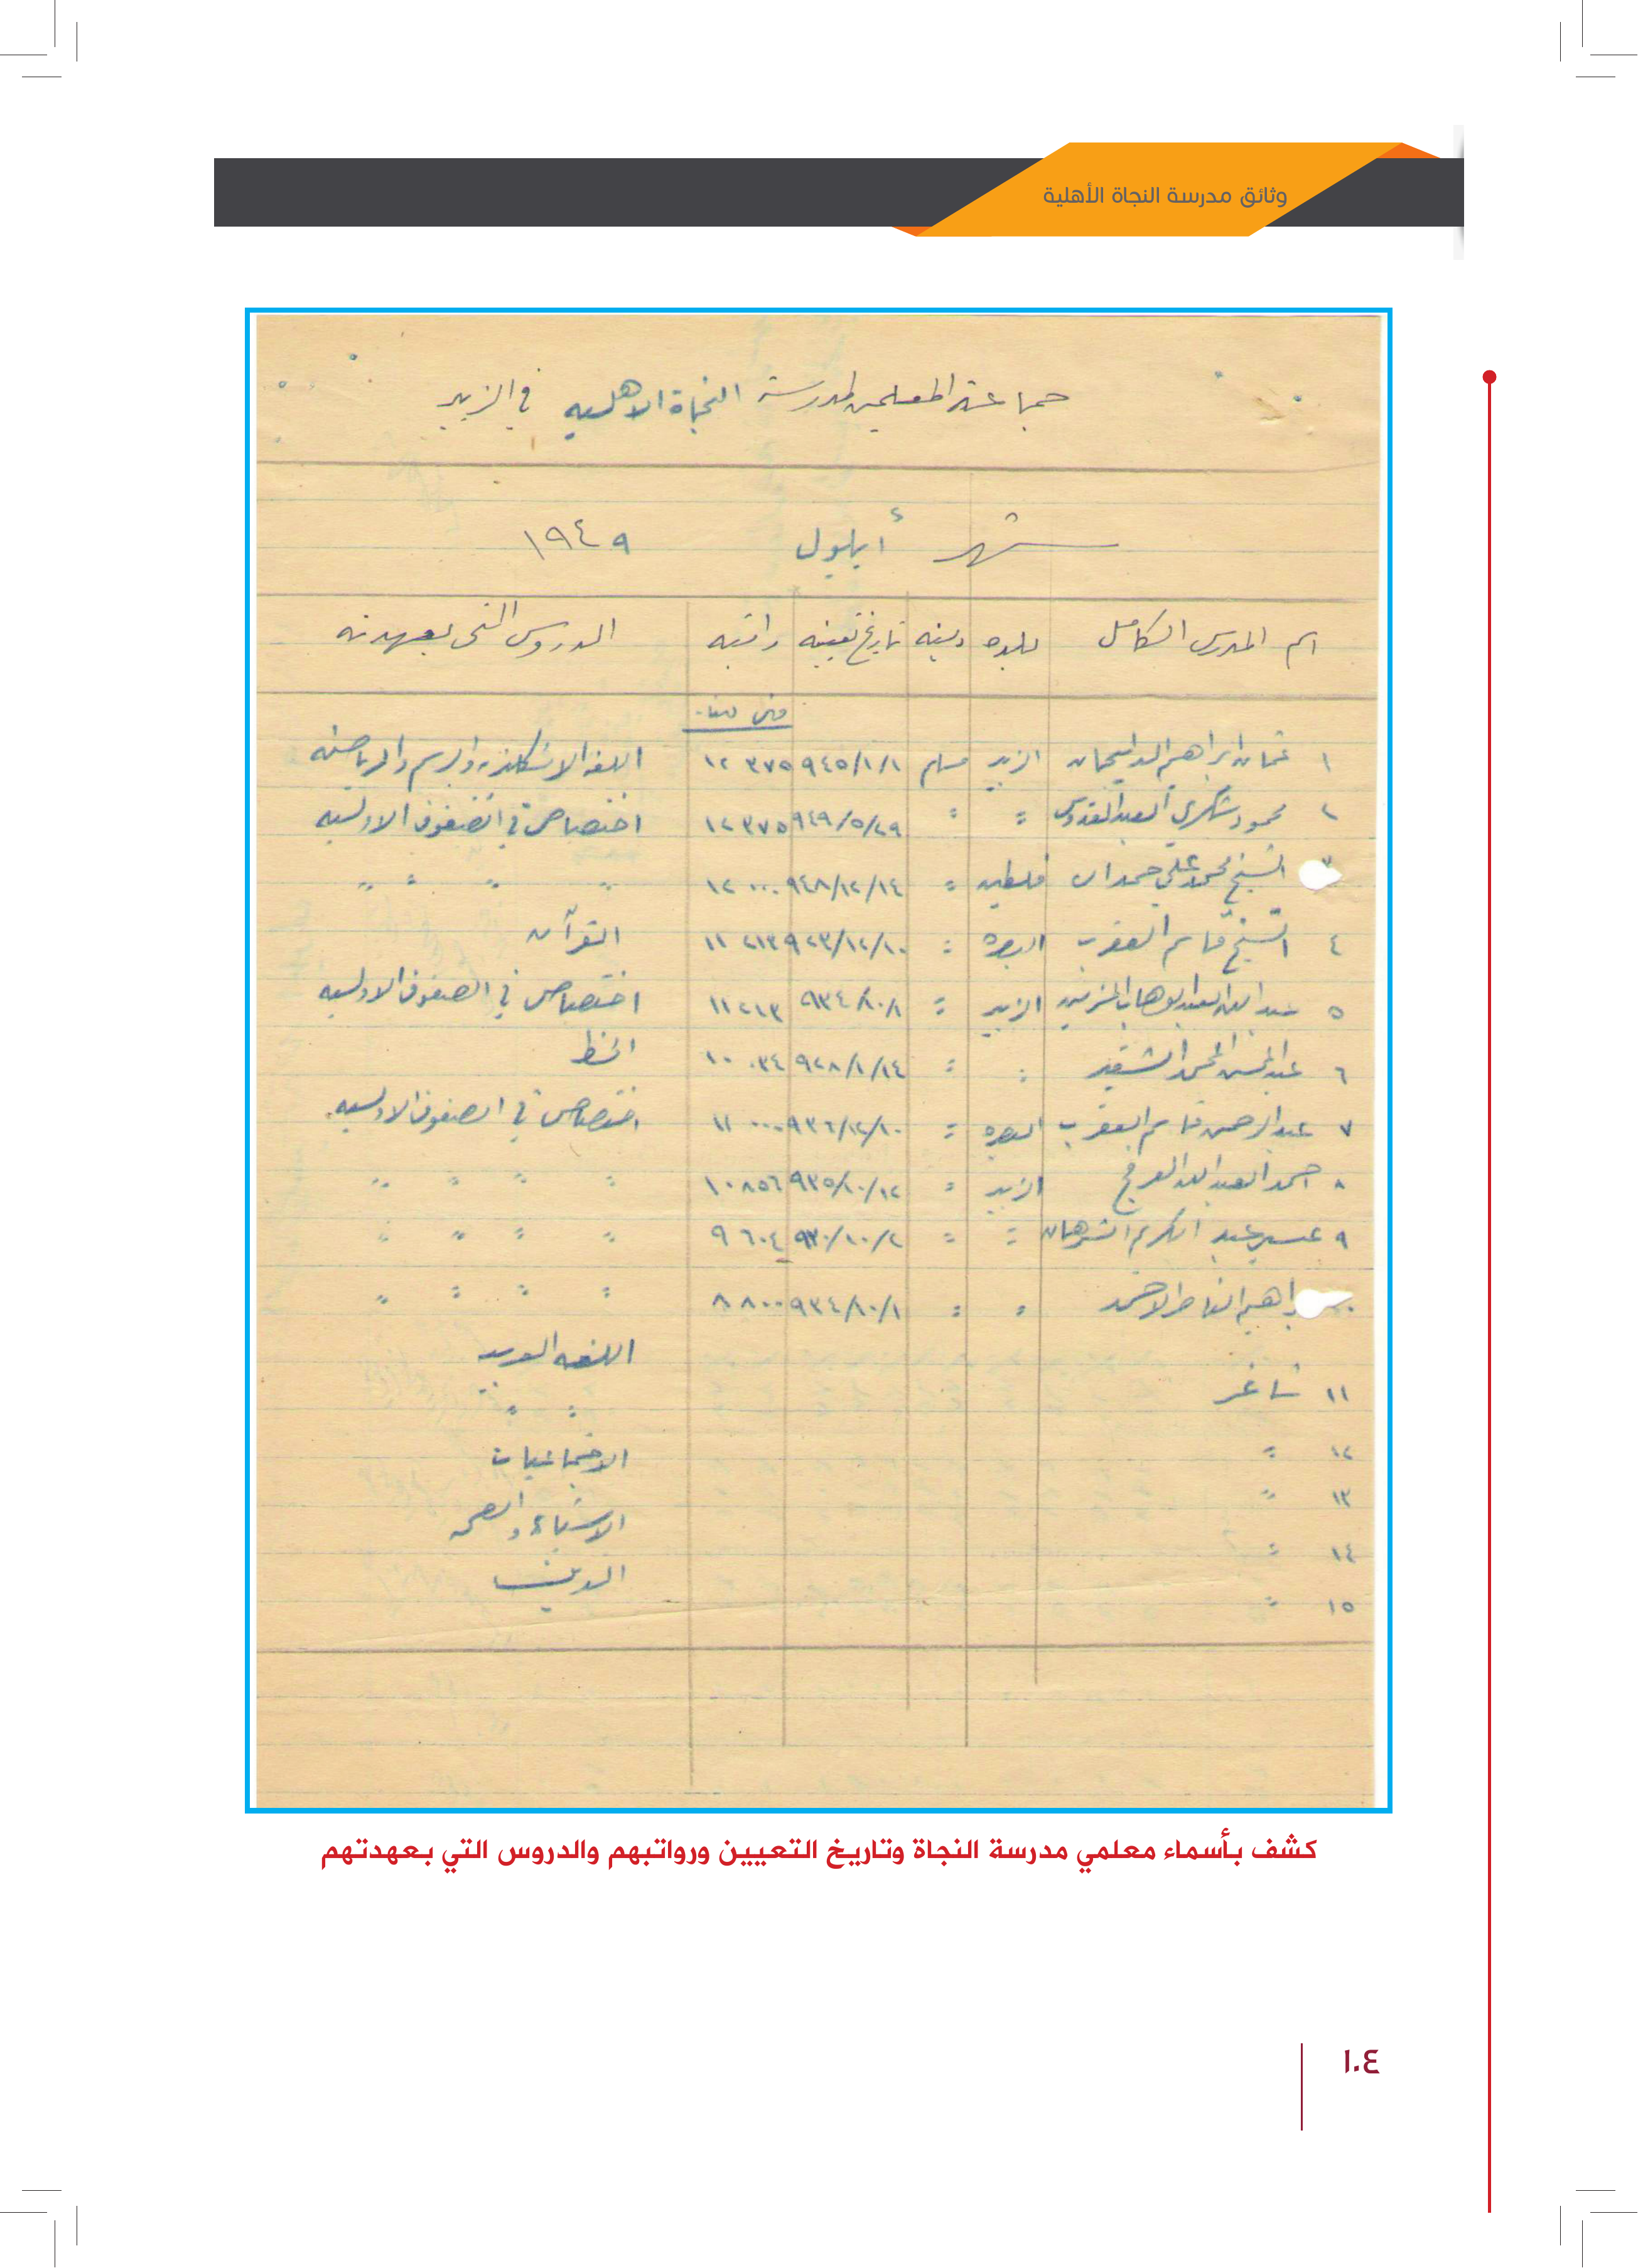 وثائق مدرسة النجاة الأهلية
جماعة المعلمين لمدرسة النجاة الاهلية في الزبير
شهر أيلول ١٩٤٩
اسم المدرس الكامل بلده دينه تاريخ تعيينه راتبه الدروس التي بعهدته
فلس دينار
١ عثمان ابراهيم الزبير مسلم ٩٤٥/١/١ ٣٧٥ ١٢ اللغة الانكليزية والرسم والرياضة
٢ محمود شكري العبد القدوس " " ٩٤٩/٥/٢٩ ٣٧٥ ١٢ اختصاص في الصفوف الاولية
٣ الشيخ محمد علي حمدان فلسطين " ٩٤٨/١٢/١٤ ٠٠٠ ١٢ " " " "
٤ الشيخ قاسم العقرب البصرة " ٩٢٣/١٢/١٠ ٢١٣ ١١ القرآن
٥ عبد الله العبد الوهاب الزبير " ٩٣٤/١٠/١ ٢١٣ ١١ اختصاص في الصفوف الاولية
٦ عبد المحسن المحمد الشقير " " ٩٢٨/١/١٤ ٠٣٤ ١٠ الخط
٧ عبد الرحمن قاسم العقرب البصرة " ٩٣٦/١٢/١٠ ٠٠٠ ١١ اختصاص في الصفوف الاولية
٨ احمد العبد الله العرفج الزبير " ٩٣٥/١٠/١٢ ٨٥٦ ١٠ " " " "
٩ عبد الكريم الشرهان " " ٩٣٠/١٠/٢ ٦٠٤ ٩ " " " "
الناصر الاحمد " " ٩٣٤/١٠/١ ٨٠٠ ٨ " " " "
١١ شاغر اللغة العربية
١٢ " " "
١٣ " الاجتماعيات
١٤ " الاشياء والصحة
١٥ " الدين
كشف بأسماء معلمي مدرسة النجاة وتاريخ التعيين ورواتبهم والدروس التي بعهدتهم
١٠٤